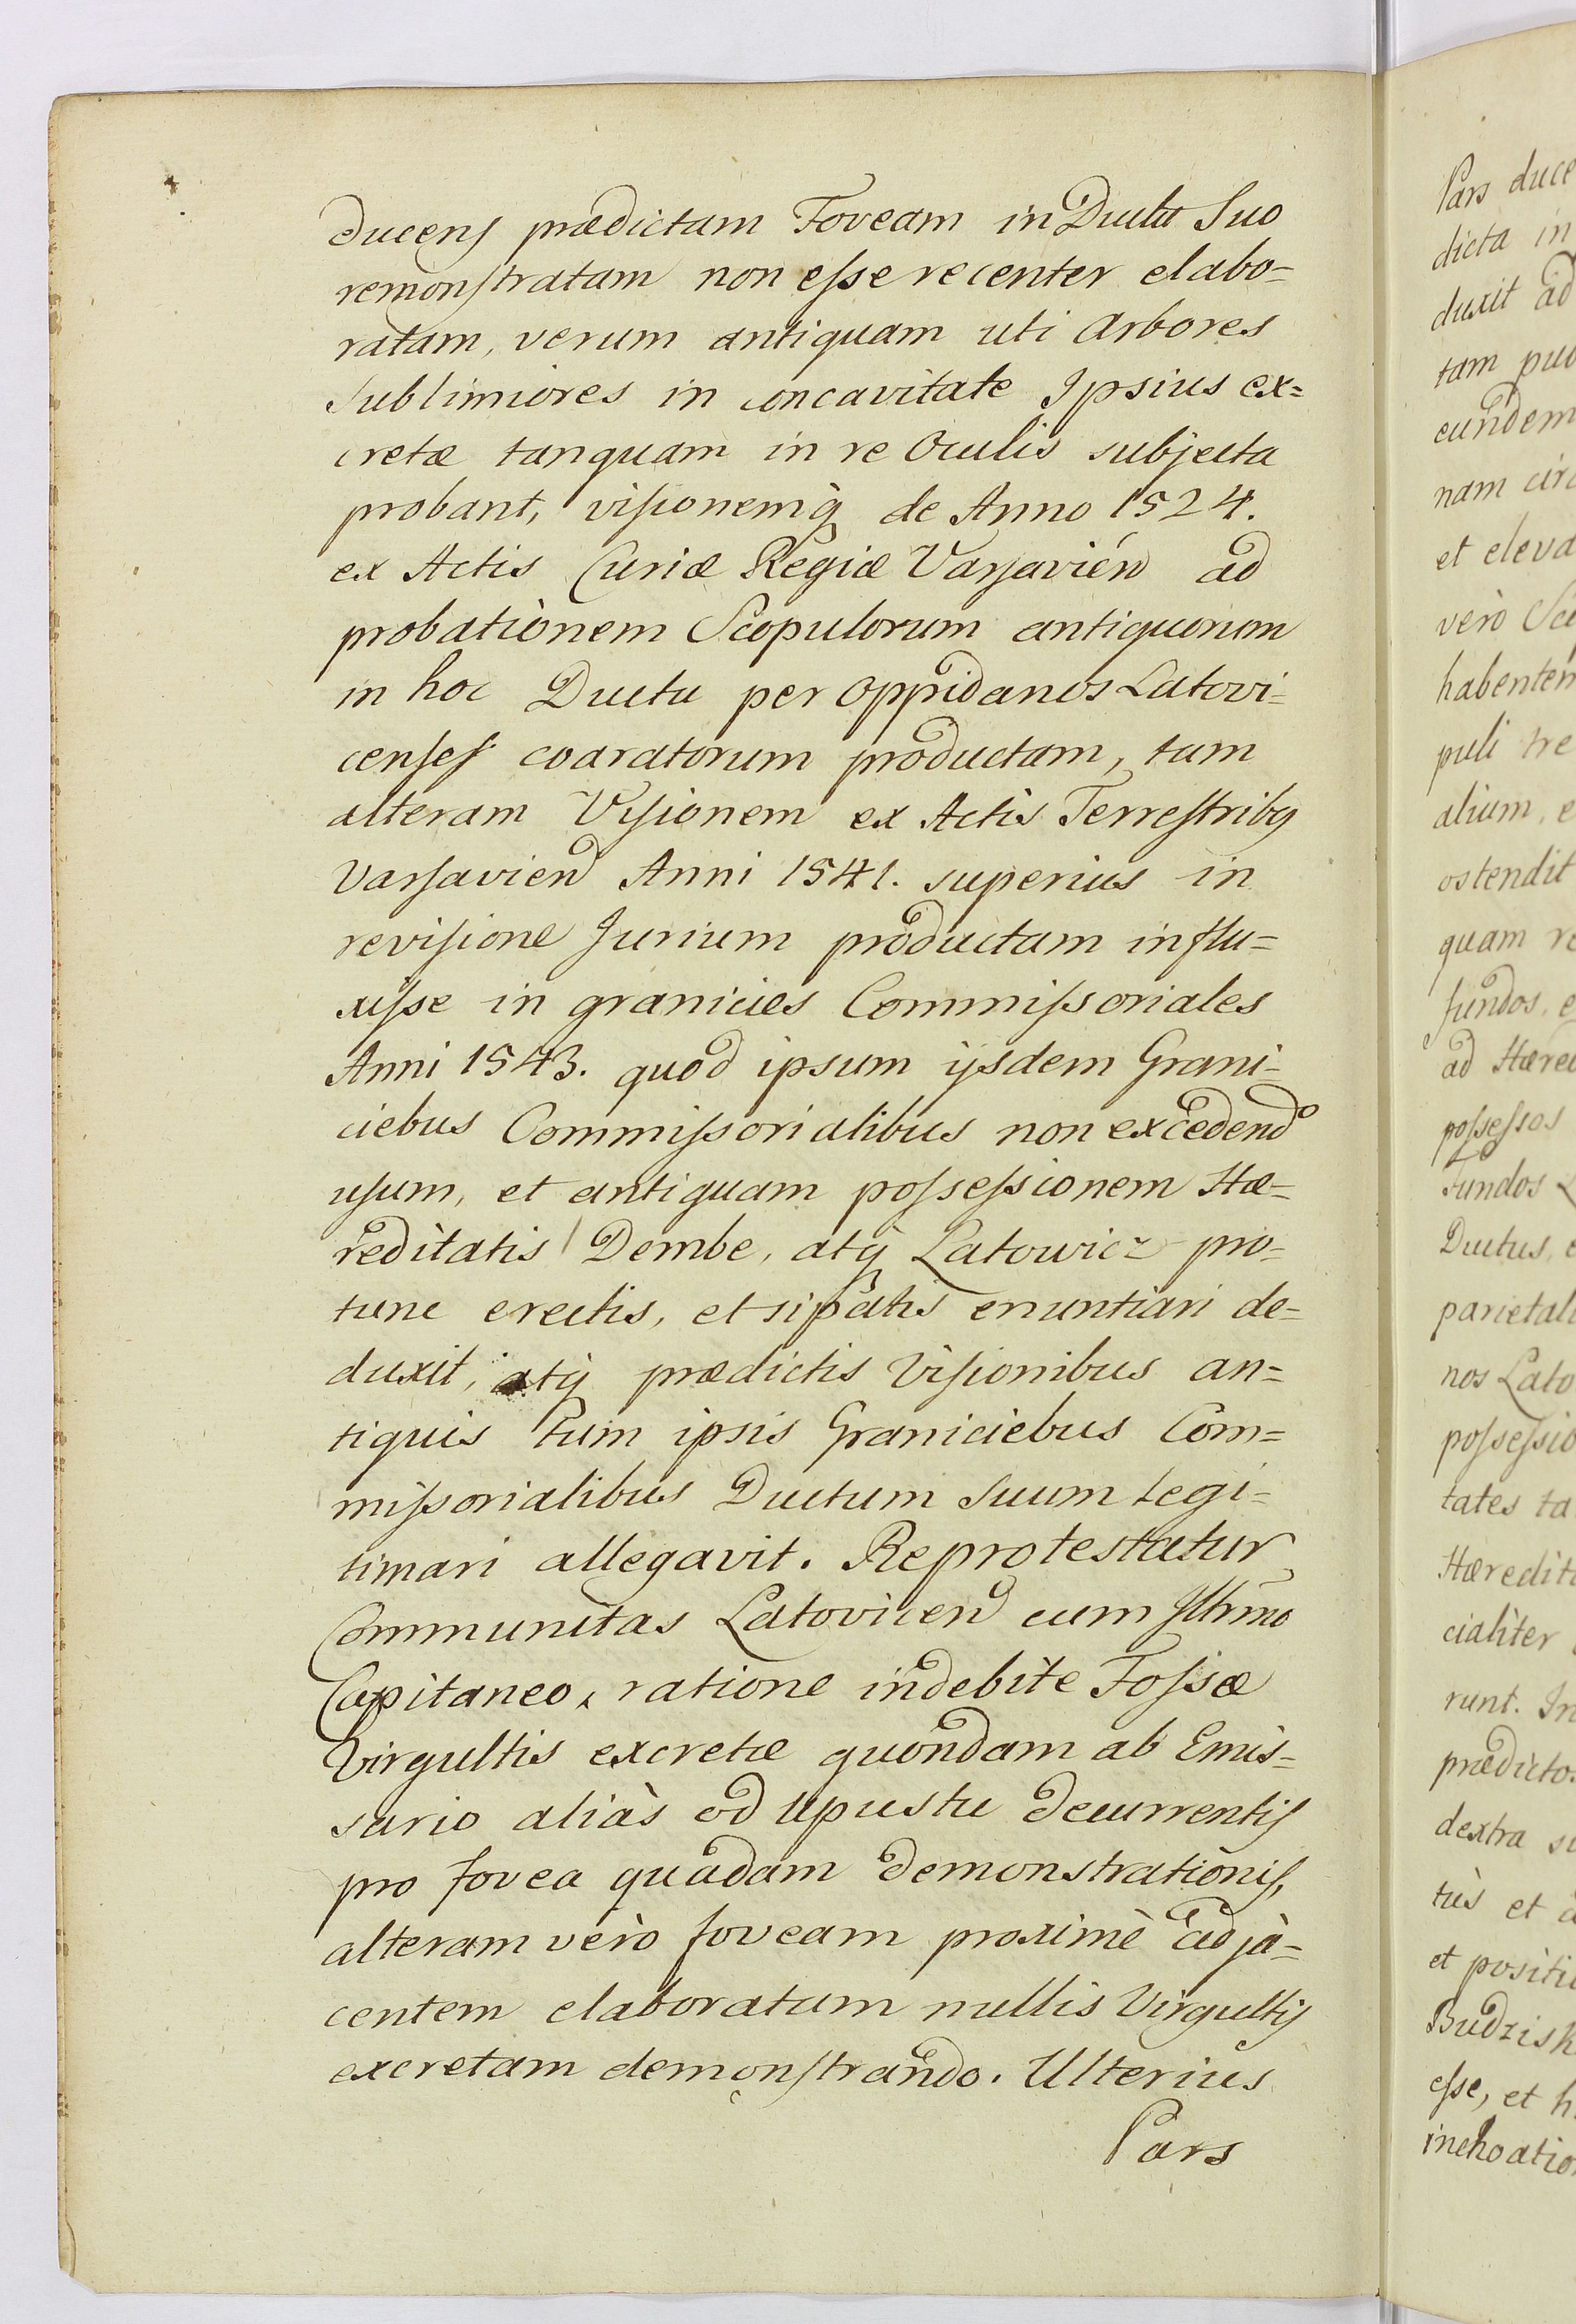 ducens prædictam Foveam in Ductu Suo
remonstratam non esse recenter elabo=
ratam, verum antiquam uti Arbores
Sublimiores in concavitate Ipsius ex=
cretæ tanquam in re Oculis subjecta
probant, visionemq; de Anno 1524.
ex Actis Curiæ Regiæ Varsavien ad
probationem Scopulorum antiquorum
in hoc Ductu per Oppidanos Latovi=
censes coaratorum productam, tum
alteram Visionem ex Actis Terrestribq
Varsavien Anni 1541. superius in
revisione Jurium productam influ=
xisse in granicies Commissoriales
Anni 1543. quod ipsum ijsdem Grani=
ciebus Commissorialibus non excedend
usum, et antiquam possessionem Hæ=
reditatis Dembe, atq; Latowicz pro=
tunc erectis, et sipatis enuntiari de=
duxit, atq; prædictis Visionibus an=
tiquis tum ipsis Graniciebus Com=
missorialibus Ductum Suum Legi=
timari allegavit. Reprotestatur
Communitas Latovicen cum Illrmo
Capitaneo, ratione indebite Fossæ
Virgultis excretæ quondam ab Emis=
sario aliàs od Upustu decurrentis
pro fovea quadam demonstrationis,
alteram verò foveam proximè adja=
centem elaboratam nullis Virgultis
excretam demonstrando. Ulterius
Pars
Pars duce
dicta in
duxit ad
tam puo
eundem
nam circ
et eleva
verò Sco
habentem
puli tre
alium, e
ostendit
quam re
fundos, e
ad Hæred
possessos
Fundos L
Ductus, e
parietali
nos Lato
possessio
tates ta
Hæredita
cialiter
runt. In
prædicto
dextra si
tùs et a
et positi
Budzisk
esse, et h
inchoatio